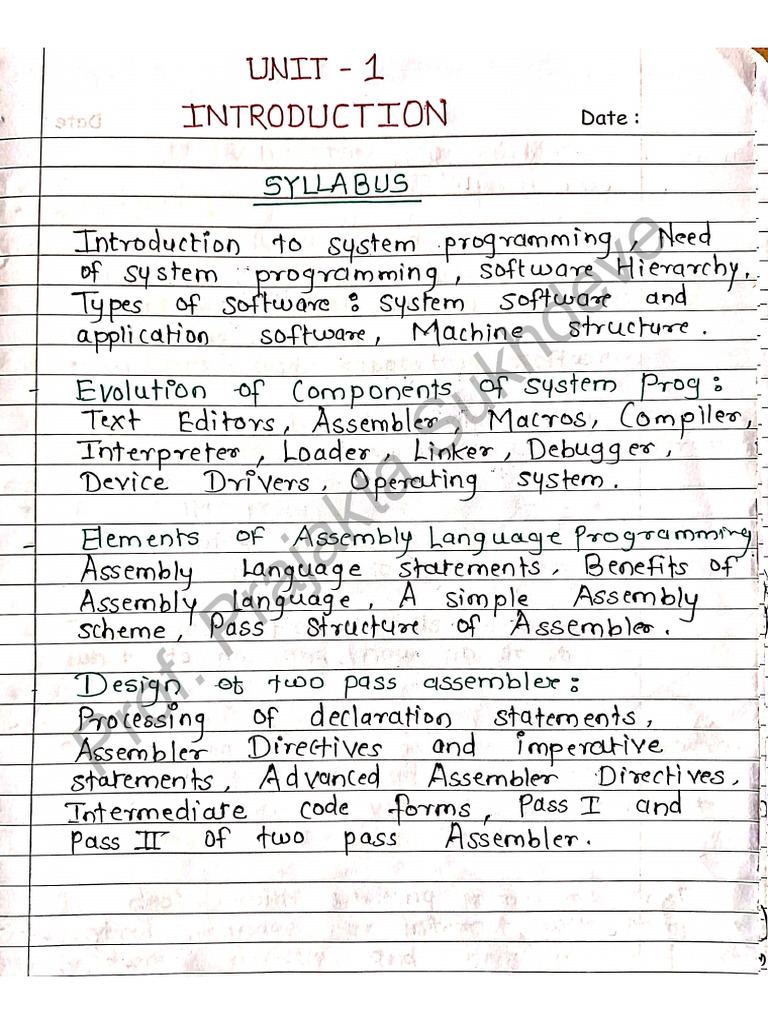 UNIT - 1
INTRODUCTION
Date :
SYLLABUS
Introduction to system programming, Need
of system programming, software Hierarchy,
Types of software : system software and
application software, Machine structure.
- Evolution of Components of system Prog :
Text Editors, Assembler, Macros, Compiler,
Interpreter, Loader, Linker, Debugger,
Device Drivers, Operating system.
- Elements of Assembly Language Programming
Assembly Language statements, Benefits of
Assembly Language, A simple Assembly
scheme, Pass structure of Assembler.
- Design of two pass assembler :
Processing of declaration statements,
Assembler Directives and imperative
statements, Advanced Assembler Directives,
Intermediate code forms, Pass I and
Pass II of two pass Assembler.
Prof. Prajakta Sukhdeve